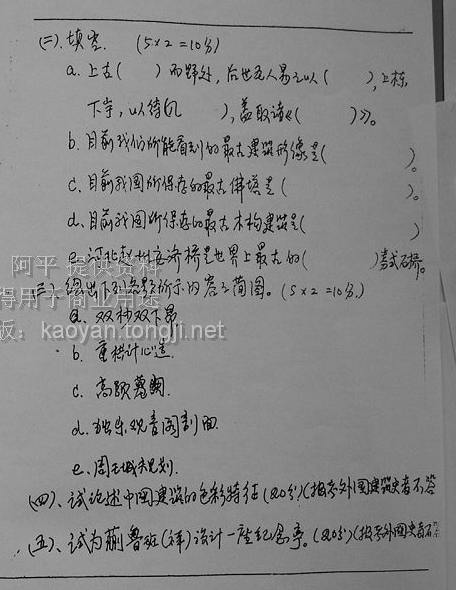 (二)、填空. (5×2=10分)
a. 上古( )而野处, 后世圣人易之以( ), 上栋
下宇, 以待风( ), 盖取诸《( )》。
b. 目前我们所能看到的最古建筑形像是( )。
c. 目前我国所保存的最古佛塔是( )。
d. 目前我国所保存的最古木构建筑是( )
e. 河北赵州安济桥是世界上最古的( )券式石桥。
阿平 提供资料
(三)、绘出下列各题所示内容之简图。(5×2=10分)
得用于商业用途
a. 双杪双下昂
版: kaoyan.tongji.net
b. 重栱计心造
c. 高颐墓阙
d. 独乐观音阁剖面
e. 周王城规划.
(四)、试论述中国建筑的色彩特征(20分)(报考外国建筑史者不答
(五)、试为蒯鲁班(祥)设计一座纪念亭。(20分)(报考外国史者不答